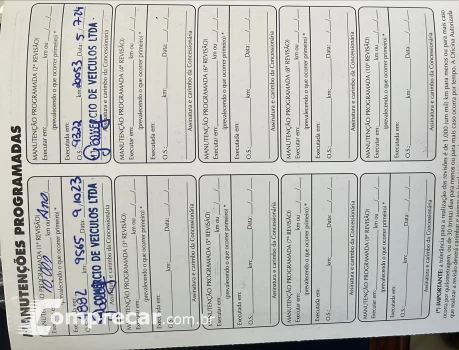 MANUTENÇÕES PROGRAMADAS
MANUTENÇÃO PROGRAMADA (1ª REVISÃO)
Executar em: 10.000 km ou 1 Ano
(prevalecendo o que ocorrer primeiro) *
Executada em:
9565 Data: 9.10.23
COMÉRCIO DE VEÍCULOS LTDA
Assinatura e carimbo da Concessionária
MANUTENÇÃO PROGRAMADA (2ª REVISÃO)
Executar em: km ou / /
(prevalecendo o que ocorrer primeiro) *
Executada em:
O.S.: 9322 km: 20053 Data: 5.7.24
COMÉRCIO DE VEÍCULOS LTDA.
Assinatura e carimbo da Concessionária
MANUTENÇÃO PROGRAMADA (3ª REVISÃO)
Executar em: km ou / /
(prevalecendo o que ocorrer primeiro) *
Executada em:
O.S.: km: Data: / /
Assinatura e carimbo da Concessionária
MANUTENÇÃO PROGRAMADA (4ª REVISÃO)
Executar em: km ou / /
(prevalecendo o que ocorrer primeiro) *
Executada em:
O.S.: km: Data: / /
Assinatura e carimbo da Concessionária
MANUTENÇÃO PROGRAMADA (5ª REVISÃO)
Executar em: km ou / /
(prevalecendo o que ocorrer primeiro) *
Executada em:
O.S.: km: Data: / /
Assinatura e carimbo da Concessionária
MANUTENÇÃO PROGRAMADA (6ª REVISÃO)
Executar em: km ou / /
(prevalecendo o que ocorrer primeiro) *
Executada em:
O.S.: km: Data: / /
Assinatura e carimbo da Concessionária
MANUTENÇÃO PROGRAMADA (7ª REVISÃO)
Executar em: km ou / /
(prevalecendo o que ocorrer primeiro) *
Executada em:
O.S.: km: Data: / /
Assinatura e carimbo da Concessionária
MANUTENÇÃO PROGRAMADA (8ª REVISÃO)
Executar em: km ou / /
(prevalecendo o que ocorrer primeiro) *
Executada em:
O.S.: km: Data: / /
Assinatura e carimbo da Concessionária
MANUTENÇÃO PROGRAMADA (9ª REVISÃO)
Executar em: km ou / /
(prevalecendo o que ocorrer primeiro) *
Executada em:
O.S.: km: Data: / /
Assinatura e carimbo da Concessionária
MANUTENÇÃO PROGRAMADA (10ª REVISÃO)
Executar em: km ou / /
(prevalecendo o que ocorrer primeiro) *
Executada em:
O.S.: km: Data: / /
Assinatura e carimbo da Concessionária
(*) IMPORTANTE: a tolerância para a realização das revisões é de 1.000 (um mil) km para menos ou para mais caso
ocorra por quilometragem, ou de 30 (trinta) dias para menos ou para mais caso ocorra por tempo. A Oficina Autorizada
que realizar a revisão deverá carimbar e
comprecar.com.br